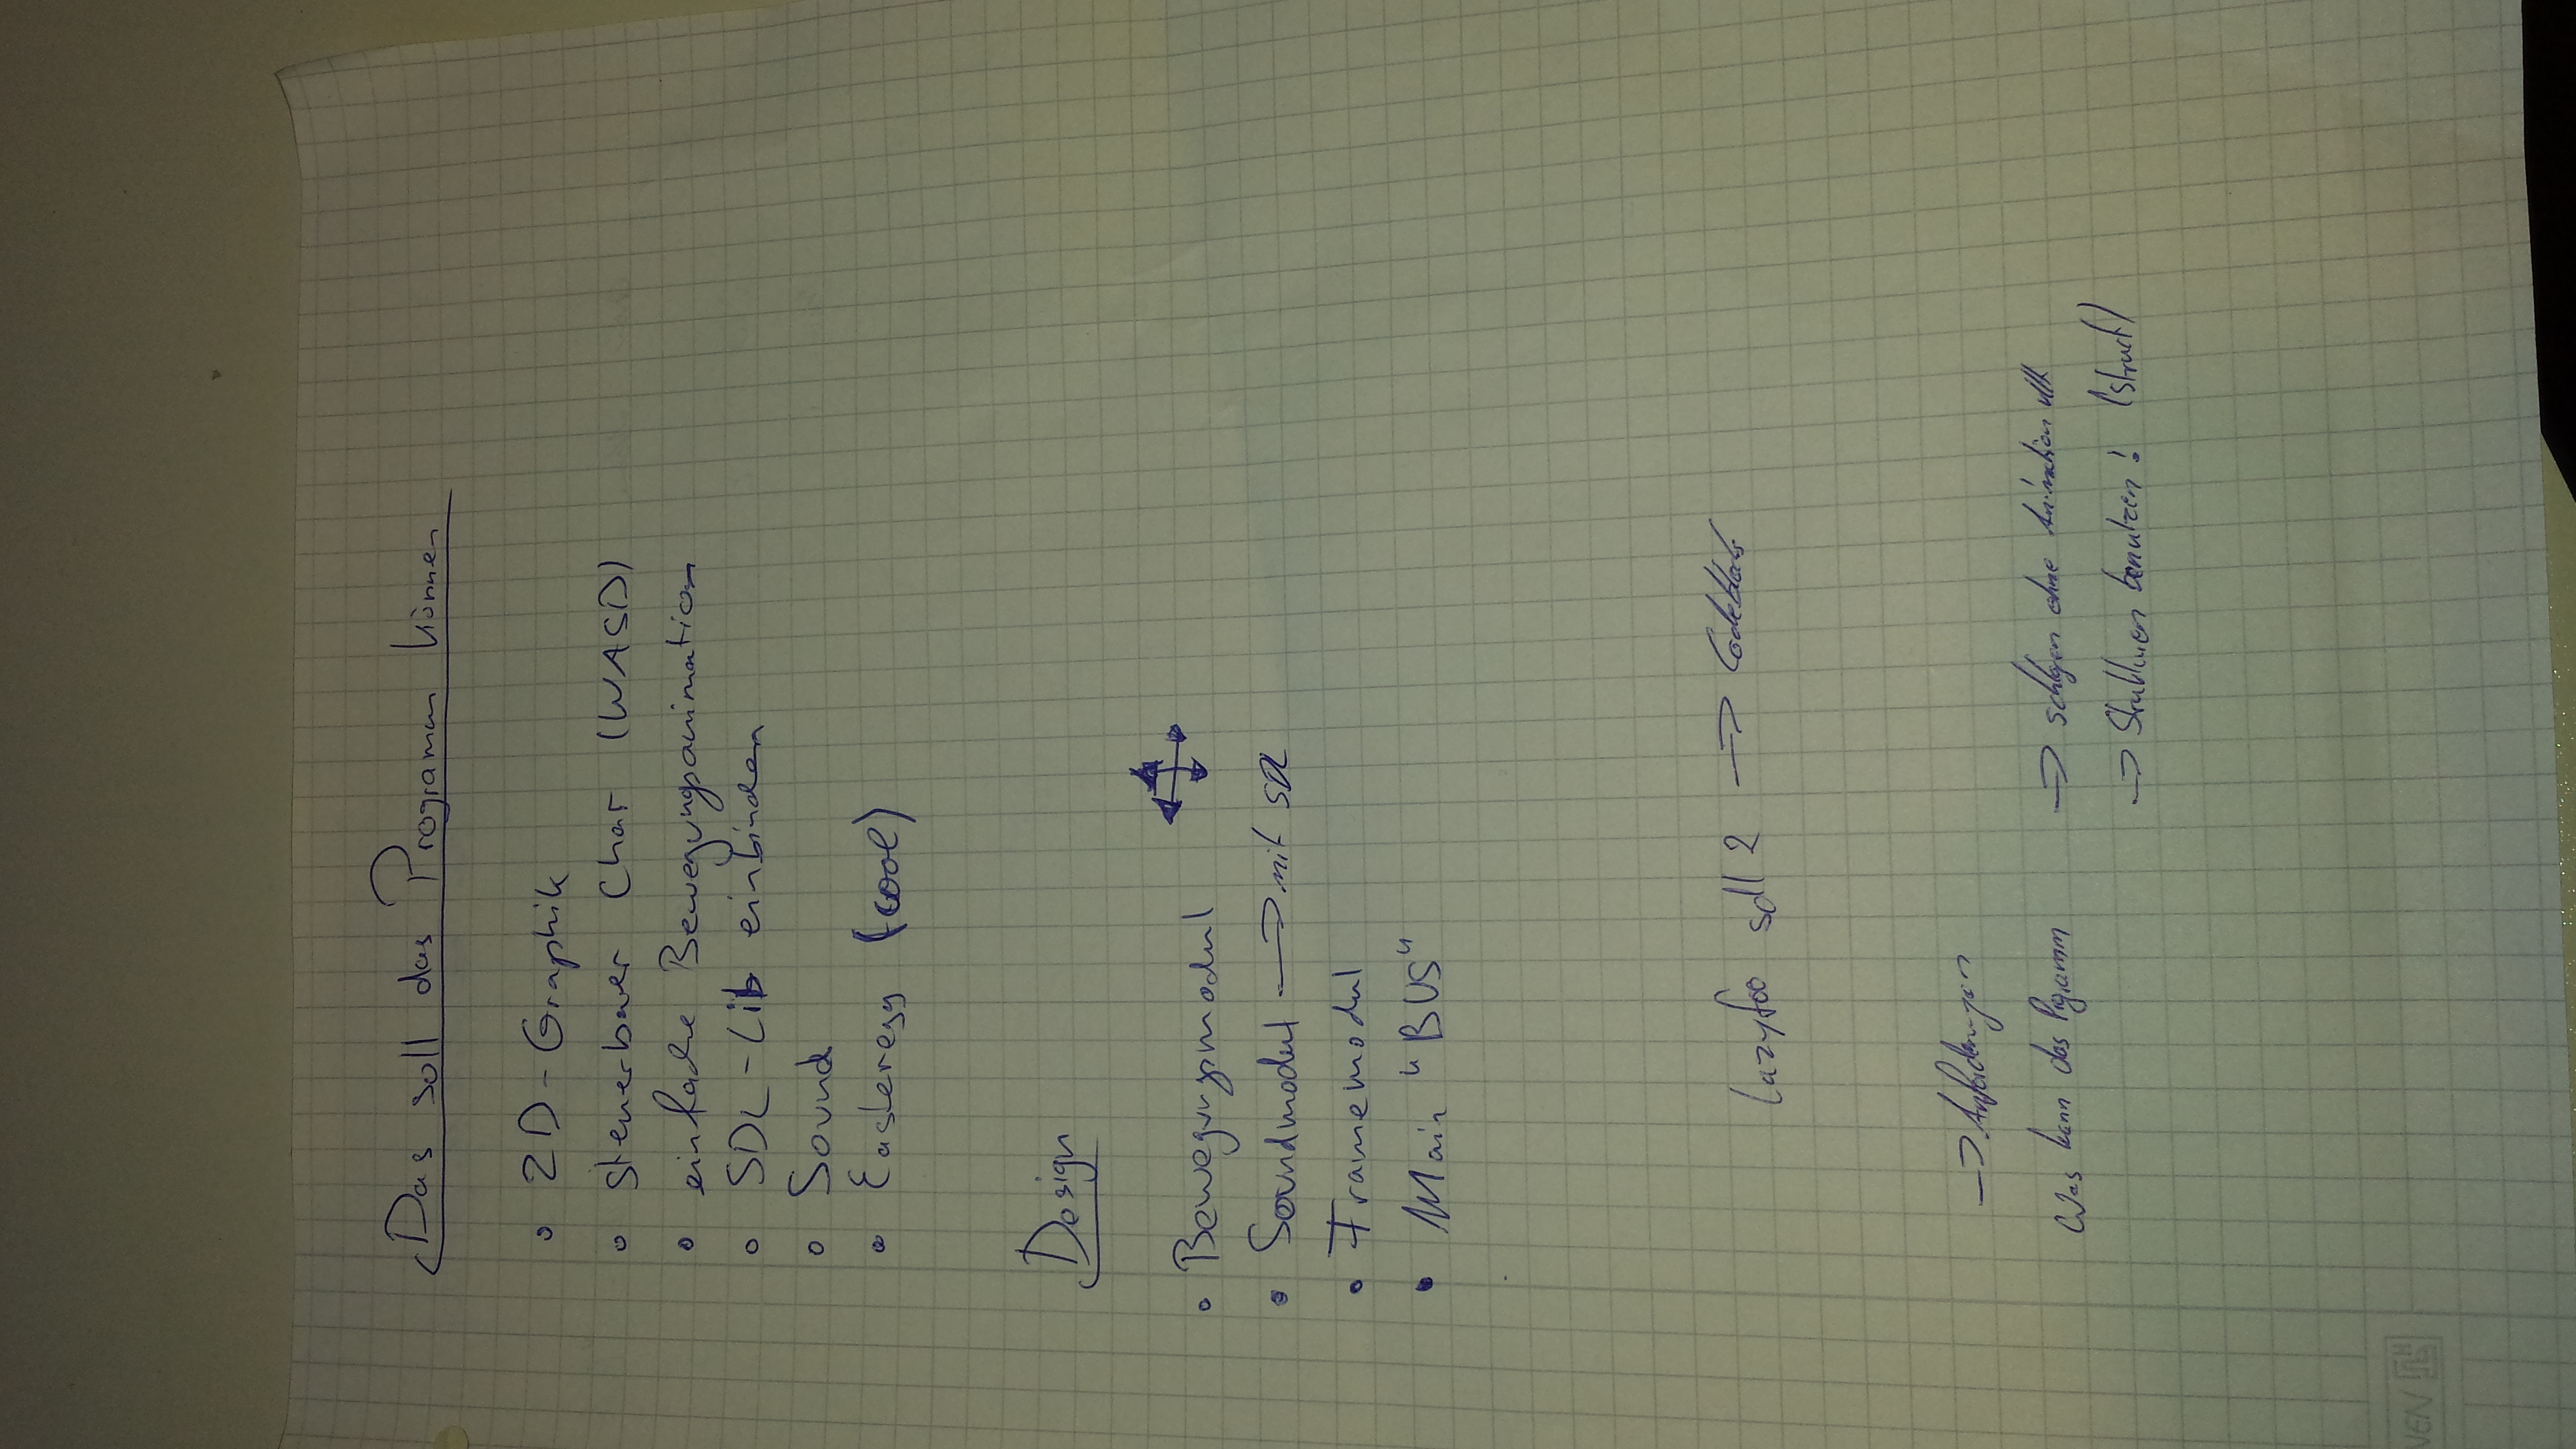 Das soll das Programm können
2D-Graphik
steuerbarer Char (WASD)
einfache Bewegungsanimation
SDL-Lib einbinden
Sound
Easteregg (cool)
Design
Bewegungsmodul
Soundmodul → mit SDL
Framemodul
Main "BUS"
Lazyfoo sdl 2 → Codeblocks
→ Anforderungen
Was kann das Programm
→ schlagen ohne Animation
→ Strukturen benutzen! (struct)
NEN